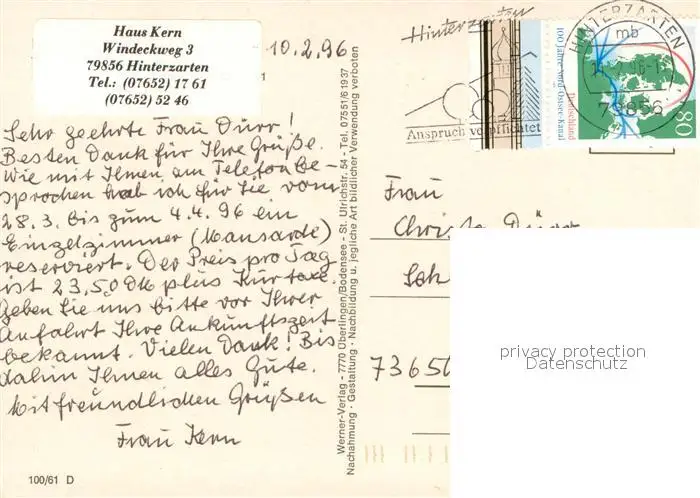 Haus Kern
Windeckweg 3
79856 Hinterzarten
Tel.: (07652) 17 61
(07652) 52 46
10.2.96
Sehr geehrte Frau Dürr!
Besten Dank für Ihre Grüße.
Wie mit Ihnen am Telefon be-
sprochen hab ich für Sie vom
28.3. bis zum 4.4.96 ein
Einzelzimmer (Mansarde)
reserviert. Der Preis pro Tag
ist 23,50 DM plus Kurtaxe.
Geben Sie uns bitte vor Ihrer
Anfahrt Ihre Ankunftszeit
bekannt. Vielen Dank! Bis
dahin Ihnen alles Gute.
Mit freundlichen Grüßen
Frau Kern
100/61 D
Werner-Verlag - 7770 Überlingen/Bodensee - St. Ulrichstr. 54 - Tel. 07551/61937
Nachahmung - Gestaltung - Nachbildung u. jegliche Art bildlicher Verwendung verboten
Hinterzarten
Anspruch verpflichtet
100 Jahre Nord-Ostsee-Kanal
Deutschland
80
HINTERZARTEN
mb
79856
Frau
73650
privacy protection
Datenschutz